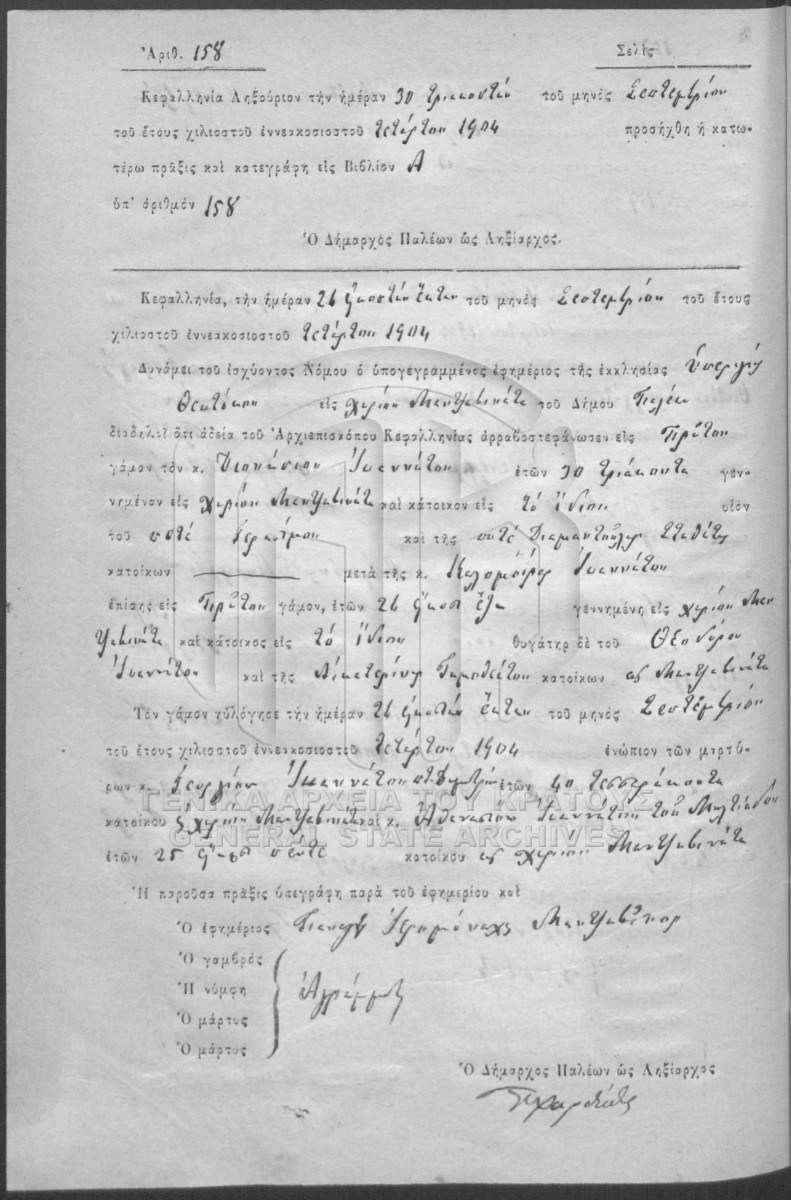 Ἀριθ. 158 Σελὶς
Κεφαλληνία Ληξούριον τὴν ἡμέραν 30 τριακοστὴν τοῦ μηνὸς Σεπτεμβρίου
τοῦ ἔτους χιλιοστοῦ ἐννεακοσιοστοῦ τετάρτου 1904 προσήχθη ἡ κατω-
τέρω πρᾶξις καὶ κατεγράφη εἰς Βιβλίον Α
ὑπ' ἀριθμὸν 158
Ὁ Δήμαρχος Παλέων ὡς Ληξίαρχος.
Κεφαλληνία, τὴν ἡμέραν 26 εἰκοστὴν ἕκτην τοῦ μηνὸς Σεπτεμβρίου τοῦ ἔτους
χιλιοστοῦ ἐννεακοσιοστοῦ τετάρτου 1904
Δυνάμει τοῦ ἰσχύοντος Νόμου ὁ ὑπογεγραμμένος ἐφημέριος τῆς ἐκκλησίας Ὑπεραγίας
Θεοτόκου εἰς χωρίον Μαντζαβινάτα τοῦ Δήμου Παλέων
διαδηλοῖ ὅτι ἀδείᾳ τοῦ Ἀρχιεπισκόπου Κεφαλληνίας ἀρραβοστεφάνωσεν εἰς Πρῶτον
γάμον τὸν κ. Διονύσιον Ἰωαννάτον ἐτῶν 30 τριάκοντα γεν-
νημένον εἰς χωρίον Μαντζαβινάτα καὶ κάτοικον εἰς τὸ ἴδιον υἱὸν
τοῦ ποτὲ Γερασίμου καὶ τῆς ποτὲ Διαμαντούλας
κατοίκων μετὰ τῆς κ. Καλομοίρας Ἰωαννάτου
ἐπίσης εἰς Πρῶτον γάμον, ἐτῶν 26 εἴκοσι ἕξι γεννημένη εἰς χωρίον Μαν
τζαβινάτα καὶ κάτοικος εἰς τὸ ἴδιον θυγάτηρ δὲ τοῦ Θεοδώρου
Ἰωαννάτου καὶ τῆς Αἰκατερίνης κατοίκων εἰς Μαντζαβινάτα
Τὸν γάμον ηὐλόγησε τὴν ἡμέραν 26 εἰκοστὴν ἕκτην τοῦ μηνὸς Σεπτεμβρίου
τοῦ ἔτους χιλιοστοῦ ἐννεακοσιοστοῦ τετάρτου 1904 ἐνώπιον τῶν μαρτύ-
ρων κ. Γεωργίου Ἰωαννάτου ἐτῶν 40 τεσσεράκοντα
κατοίκου εἰς χωρίον Μαντζαβινάτα καὶ κ. Ἀθανασίου Ἰωαννάτου τοῦ Μιλτιάδου
ἐτῶν 25 εἴκοσι πέντε κατοίκου εἰς χωρίον Μαντζαβινάτα
Ἡ παροῦσα πρᾶξις ὑπεγράφη παρὰ τοῦ ἐφημερίου καὶ
Ὁ ἐφημέριος Ἱερομόναχος
Ὁ γαμβρὸς
Ἡ νύμφη Ἀγράμματοι
Ὁ μάρτυς
Ὁ μάρτυς
Ὁ Δήμαρχος Παλέων ὡς Ληξίαρχος
ΓΕΝΙΚΑ ΑΡΧΕΙΑ ΤΟΥ ΚΡΑΤΟΥΣ
GENERAL STATE ARCHIVES